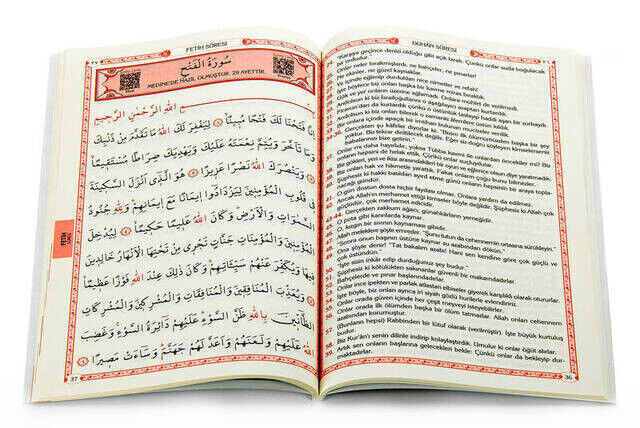 DUHÂN SÛRESİ
٣٦
"Karaya geçince denizi olduğu gibi açık bırak. Çünkü onlar suda boğulacak
bir ordudur."
Onlar neler bırakmışlardı, ne bahçeler, ne pınarlar!
Ne ekinler, ne güzel konaklar.
Ve içinde eğlenip durdukları nice nimetler ve refah!
İşte böylece biz onları başka bir kavme miras bıraktık.
Gök ve yer onların üzerine ağlamadı. Onlara mühlet de verilmedi.
Andolsun ki biz İsrailoğullarını o aşağılayıcı azaptan kurtardık.
Firavun'dan da kurtardık çünkü o üstünlük taslayıp haddi aşan bir zorbaydı.
Andolsun ki biz onları bilerek o zamanki âlemlere üstün kıldık.
Biz onlara içinde apaçık bir imtihan bulunan mucizeler verdik.
34-36. Gerçekten şu kâfirler diyorlar ki: "Bizim ilk ölümümüzden başka bir şey
yoktur. Biz tekrar diriltilecek değiliz. Eğer siz doğru söyleyen kimselerseniz
babalarımızı bize getirin."
37. Onlar mı daha hayırlıdır, yoksa Tübba kavmi ile onlardan öncekiler mi? Biz
onların hepsini de helak ettik. Çünkü onlar suçluydular.
38. Biz gökleri, yeri ve ikisi arasındakileri bir oyun ve eğlence olsun diye yaratmadık.
39. Biz onları hak ve hikmetle yarattık. Fakat onların çoğu bunu bilmezler.
40. Şüphesiz ki hakkı batıldan ayırd etme günü onların hepsinin bir araya topla-
nacağı gündür.
41. O gün dostun dosta hiçbir faydası olmaz. Onlara yardım da edilmez.
42. Ancak Allah'ın merhamet ettiği kimseler böyle değildir. Şüphesiz ki Allah çok
güçlüdür, çok merhamet edicidir.
43-44. Gerçekten zakkum ağacı, günahkârların yemeğidir.
45. O pota gibi karınlarda kaynar.
46. O, kızgın bir sıvının kaynaması gibidir.
47. Allah meleklere şöyle emreder: "Şunu tutun da cehennemin ortasına sürükleyin."
48. "Sonra onun başının üstüne kaynar su azabından dökün."
49. Ona şöyle denir! "Tat bakalım azabı! Hani sen kendine göre çok güçlü ve
çok üstündün."
50. "İşte sizin inkâr edip durduğunuz şey budur."
51. Şüphesiz ki kötülükten sakınanlar güvenli bir makamdadırlar.
52. Bahçelerde ve pınar başlarındadırlar.
53. Onlar ince ipekten ve parlak atlastan elbiseler giyerek karşılıklı olarak otururlar.
54. İşte böyle, biz onları ayrıca iri siyah gözlü hurilerle evlendiririz.
55. Onlar orada güven içinde her çeşit meyveyi isteyebilirler.
56. Onlar orada ilk ölümden başka bir ölüm tatmazlar. Allah onları cehennem
azabından korumuştur.
57. (Bunların hepsi) Rabbinden bir lütuf olarak (verilmiştir). İşte büyük kurtuluş
budur.
58. Biz Kur'an'ı senin dilinle indirip kolaylaştırdık. Umulur ki onlar öğüt alırlar.
59. Artık sen onların başlarına gelecekleri bekle: Çünkü onlar da bekleyip dur-
maktadırlar.
36
FETİH SÛRESİ
٣٧
سُورَةُ الْفَتْحِ
MEDİNE'DE NAZİL OLMUŞTUR. 29 AYETTİR.
بِسْمِ اللهِ الرَّحْمٰنِ الرَّحِيمِ
إِنَّا فَتَحْنَا لَكَ فَتْحًا مُبِينًا ۝ لِيَغْفِرَ لَكَ اللهُ مَا تَقَدَّمَ مِنْ ذَنْبِكَ
وَمَا تَأَخَّرَ وَيُتِمَّ نِعْمَتَهُ عَلَيْكَ وَيَهْدِيَكَ صِرَاطًا مُسْتَقِيمًا
۝ وَيَنْصُرَكَ اللهُ نَصْرًا عَزِيزًا ۝ هُوَ الَّذِي أَنْزَلَ السَّكِينَةَ
فِي قُلُوبِ الْمُؤْمِنِينَ لِيَزْدَادُوا إِيمَانًا مَعَ إِيمَانِهِمْ وَلِلهِ جُنُودُ
السَّمٰوَاتِ وَالْأَرْضِ وَكَانَ اللهُ عَلِيمًا حَكِيمًا ۝ لِيُدْخِلَ
الْمُؤْمِنِينَ وَالْمُؤْمِنَاتِ جَنَّاتٍ تَجْرِي مِنْ تَحْتِهَا الْأَنْهَارُ خَالِدِينَ
فِيهَا وَيُكَفِّرَ عَنْهُمْ سَيِّئَاتِهِمْ وَكَانَ ذٰلِكَ عِنْدَ اللهِ فَوْزًا عَظِيمًا
۝ وَيُعَذِّبَ الْمُنَافِقِينَ وَالْمُنَافِقَاتِ وَالْمُشْرِكِينَ وَالْمُشْرِكَاتِ
الظَّانِّينَ بِاللهِ ظَنَّ السَّوْءِ عَلَيْهِمْ دَائِرَةُ السَّوْءِ وَغَضِبَ
اللهُ عَلَيْهِمْ وَلَعَنَهُمْ وَأَعَدَّ لَهُمْ جَهَنَّمَ وَسَاءَتْ مَصِيرًا ۝
FETİH
37